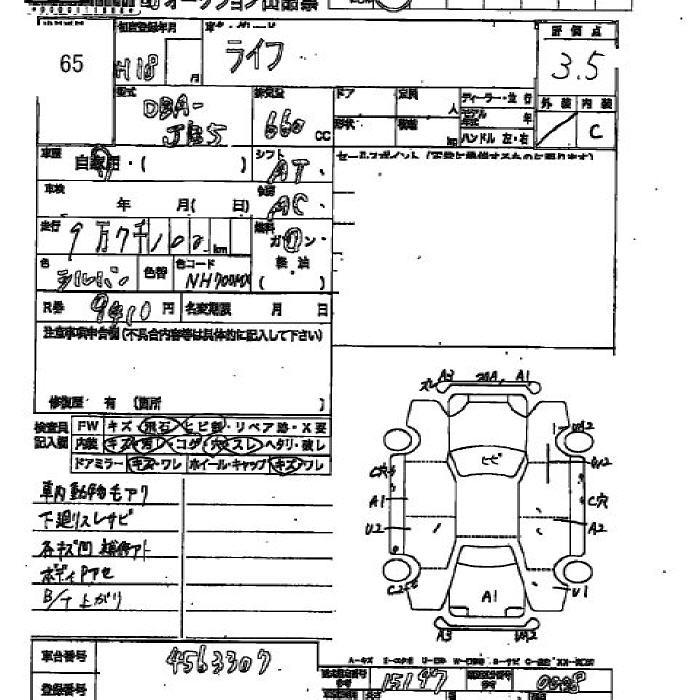 65
初度登録年月
H18 月
ライフ
評価点
3.5
型式
DBA-
JB5
排気量
660 CC
ドア
定員 人
形状
積載 kg
ディーラー・並行
モデル年式 年
ハンドル 左・右
外装 内装
C
車歴
自家用・( )
シフト
AT・
車検
年 月( 日)
冷房
AC・
走行
9万7千102 km
燃料
ガ ン・
軽油
( )
色
シルバン
色替
色コード
NH700MX
R券 9410円
名変期限 月 日
注意事項申告欄(不具合内容等は具体的に記入して下さい)
修復歴 有 (箇所 )
検査員
記入欄
FW キズ・飛石・ヒビ割・リペア跡・X要
内装 キズ・汚れ・コゲ・穴・スレ・ヘタリ・破レ
ドアミラー キズ・ワレ ホイール・キャップ キズ・ワレ
車内動物毛アク
下廻りスレサビ
各キズ凹補修アト
ボディPアセ
B/T上がり
A3 A1
ヒビ
C穴
A1
U2
C穴
A2
A1
U1
A3
車台番号
4563307
登録番号
15147
0008